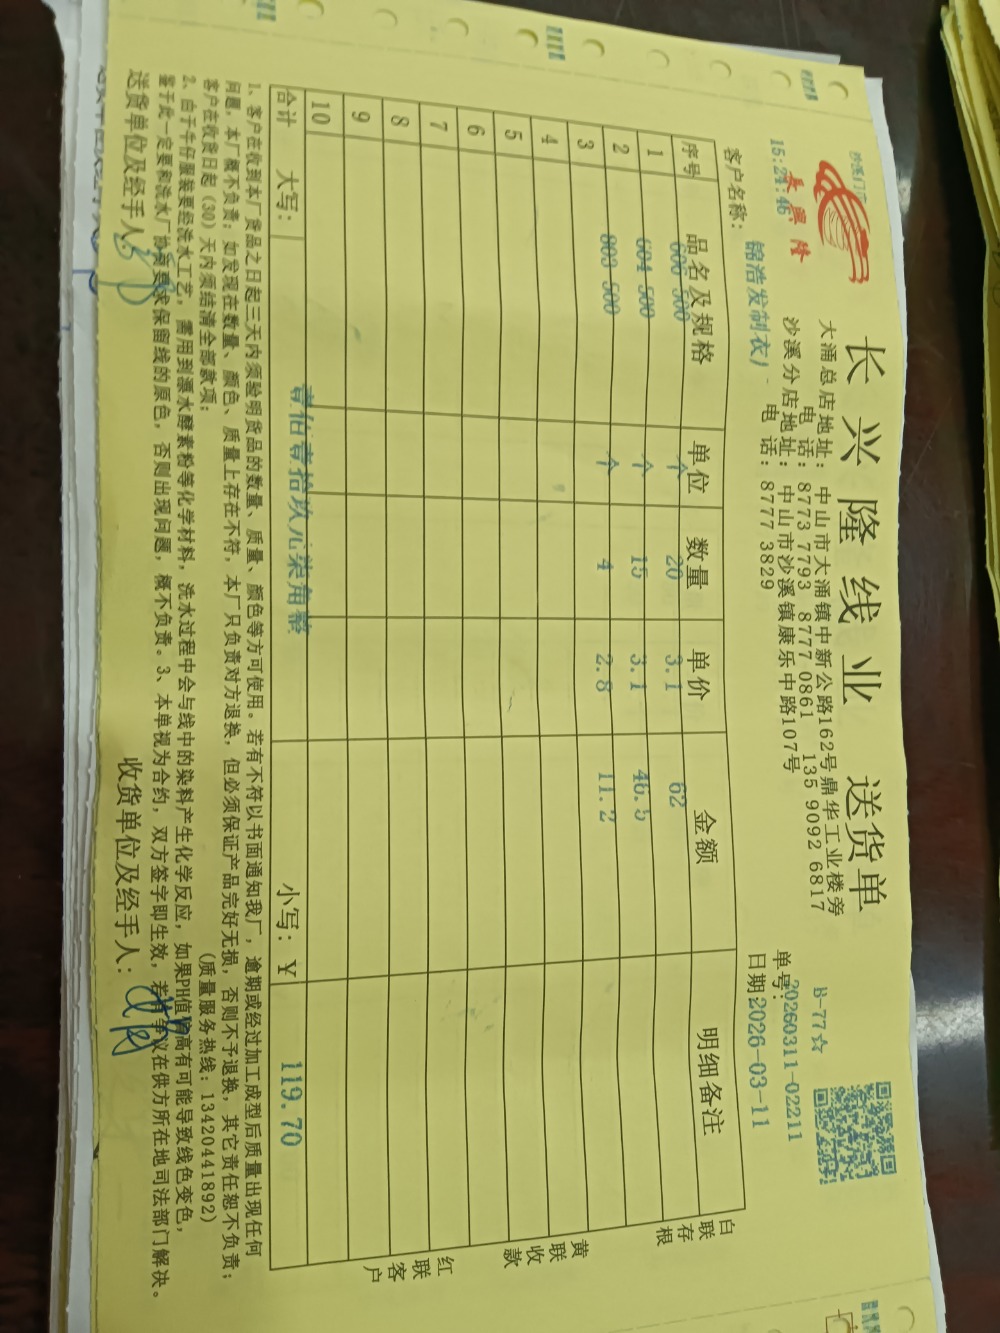 长兴隆线业 送货单
長興隆
沙溪门
15:24:46
大涌总店地址：中山市大涌镇中新公路162号鼎华工业楼旁
电话：8773 7793 8777 0861 135 9092 6817
沙溪分店地址：中山市沙溪镇康乐中路107号
电话：8777 3829
B-77☆
单号：20260311-02211
日期 2026-03-11
客户名称：锦浩发制衣厂
序号 品名及规格 单位 数量 单价 金额 明细备注
1 606 500 个 20 3.1 62
2 604 500 个 15 3.1 46.5
3 603 500 个 4 2.8 11.2
4
5
6
7
8
9
10
合计 大写：壹佰壹拾玖元柒角整 小写：¥ 119.70
白联存根
黄联收款
红联客户
1、客户在收到本厂货品之日起三天内须验明货品的数量、质量、颜色等方可使用。若有不符以书面通知我厂，逾期或经过加工成型后质量出现任何
问题，本厂概不负责；如发现在数量、颜色、质量上存在不符，本厂只负责对方退换，但必须保证产品完好无损，否则不予退换，其它责任恕不负责；
客户在收货日起（30）天内须结清全部款项； （质量服务热线：13420441892）
2、由于牛仔服装要经洗水工艺，需用到漂水酵素粉等化学材料，洗水过程中会与线中的染料产生化学反应，如果PH值偏高有可能导致线色变色，
鉴于此一定要和洗水厂协商要求保留线的原色，否则出现问题，概不负责。3、本单视为合约，双方签字即生效，若有争议在供方所在地司法部门解决。
送货单位及经手人： 收货单位及经手人：